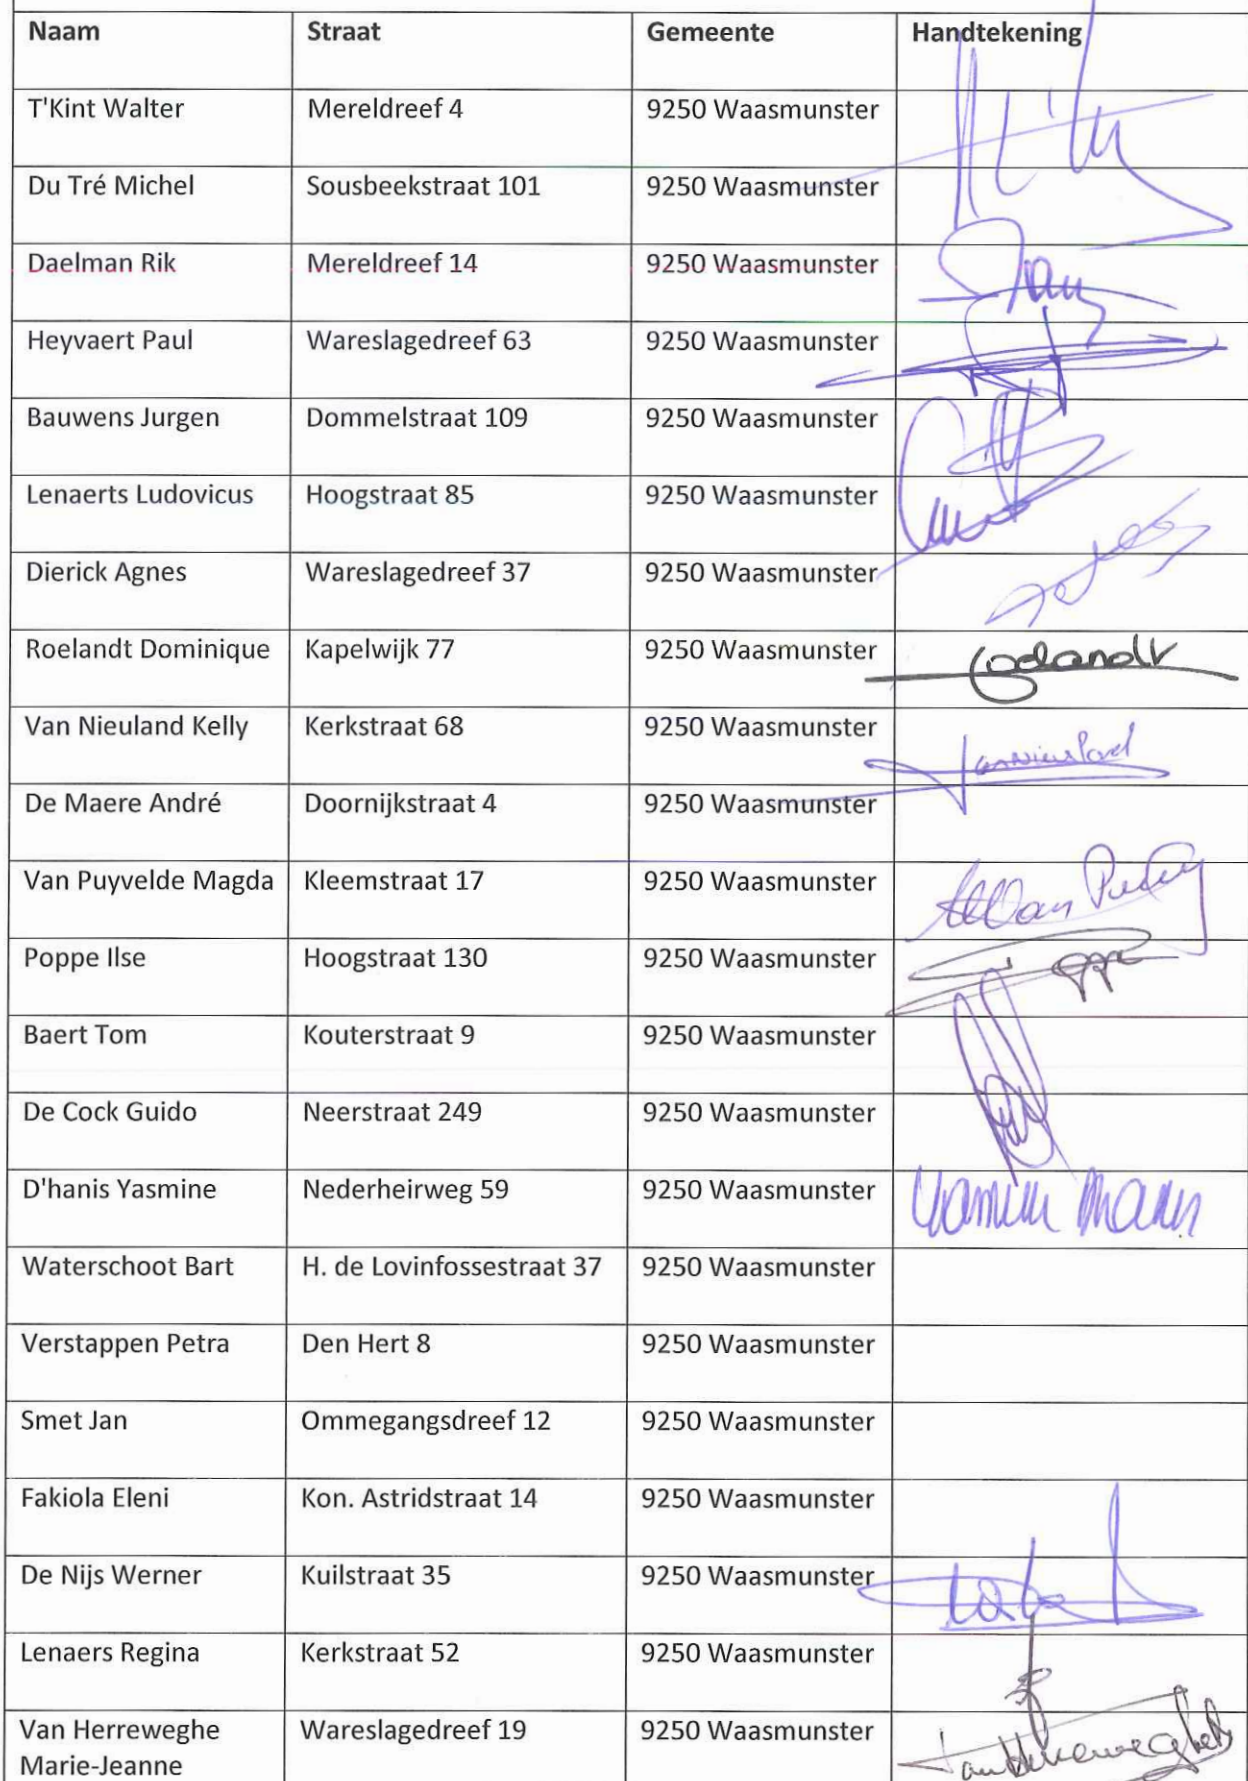 Naam Straat Gemeente Handtekening
T'Kint Walter Mereldreef 4 9250 Waasmunster
Du Tré Michel Sousbeekstraat 101 9250 Waasmunster
Daelman Rik Mereldreef 14 9250 Waasmunster
Heyvaert Paul Wareslagedreef 63 9250 Waasmunster
Bauwens Jurgen Dommelstraat 109 9250 Waasmunster
Lenaerts Ludovicus Hoogstraat 85 9250 Waasmunster
Dierick Agnes Wareslagedreef 37 9250 Waasmunster
Roelandt Dominique Kapelwijk 77 9250 Waasmunster
Van Nieuland Kelly Kerkstraat 68 9250 Waasmunster
De Maere André Doornijkstraat 4 9250 Waasmunster
Van Puyvelde Magda Kleemstraat 17 9250 Waasmunster
Poppe Ilse Hoogstraat 130 9250 Waasmunster
Baert Tom Kouterstraat 9 9250 Waasmunster
De Cock Guido Neerstraat 249 9250 Waasmunster
D'hanis Yasmine Nederheirweg 59 9250 Waasmunster
Waterschoot Bart H. de Lovinfossestraat 37 9250 Waasmunster
Verstappen Petra Den Hert 8 9250 Waasmunster
Smet Jan Ommegangsdreef 12 9250 Waasmunster
Fakiola Eleni Kon. Astridstraat 14 9250 Waasmunster
De Nijs Werner Kuilstraat 35 9250 Waasmunster
Lenaers Regina Kerkstraat 52 9250 Waasmunster
Van Herreweghe Wareslagedreef 19 9250 Waasmunster
Marie-Jeanne